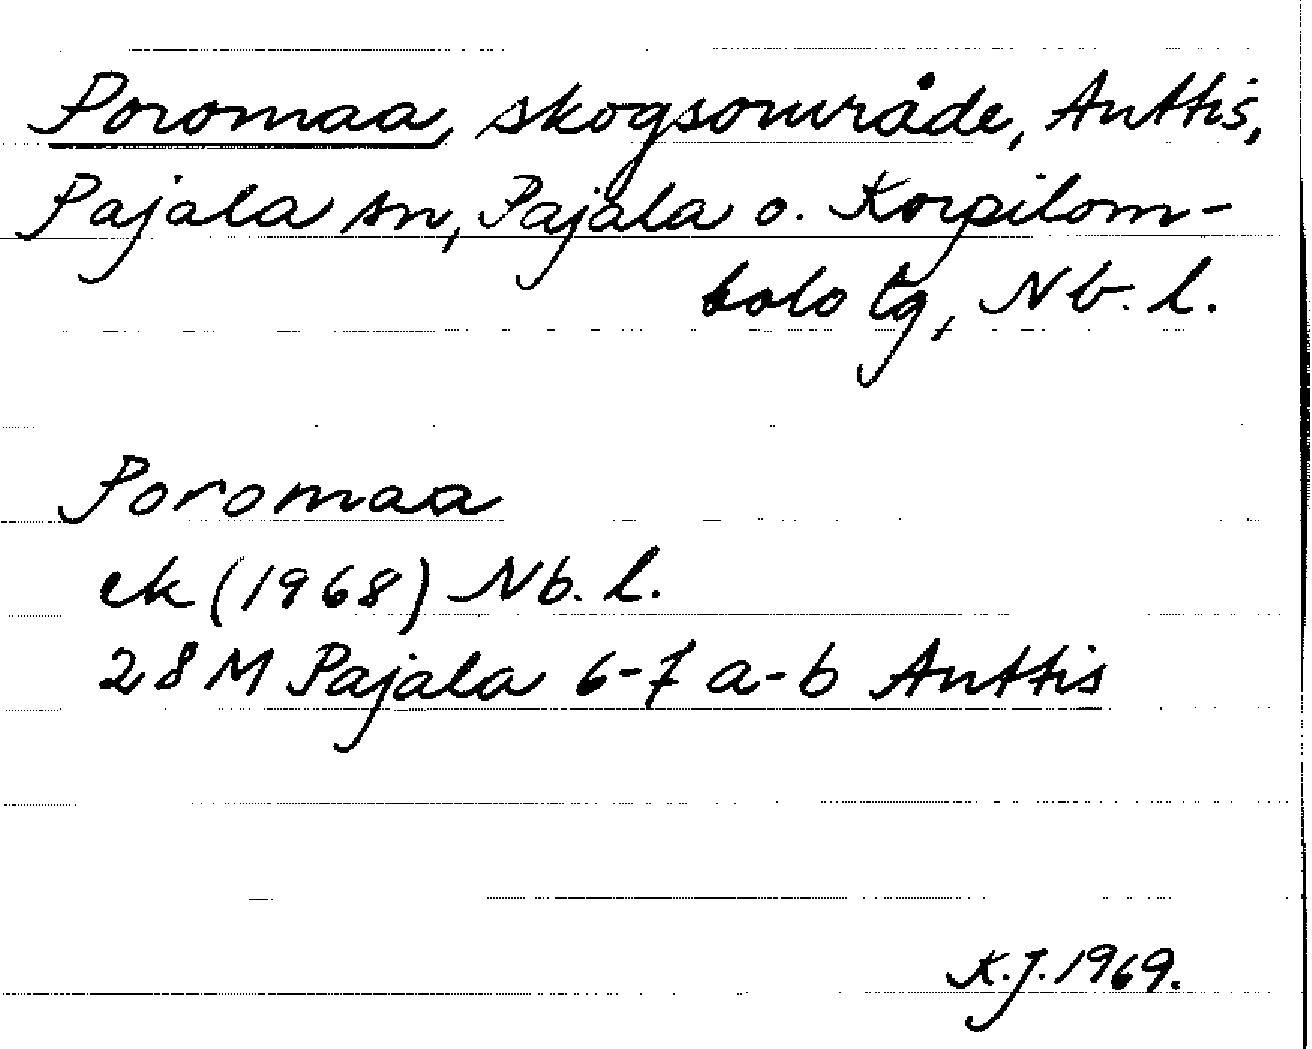 Poromaa, skogsområde, Anttis,
Pajala sn, Pajala o. Korpilom-
bolo tg, Nb. l.
Poromaa
ek (1968) Nb. l.
28 M Pajala 6-7 a-b Anttis
K.J. 1969.